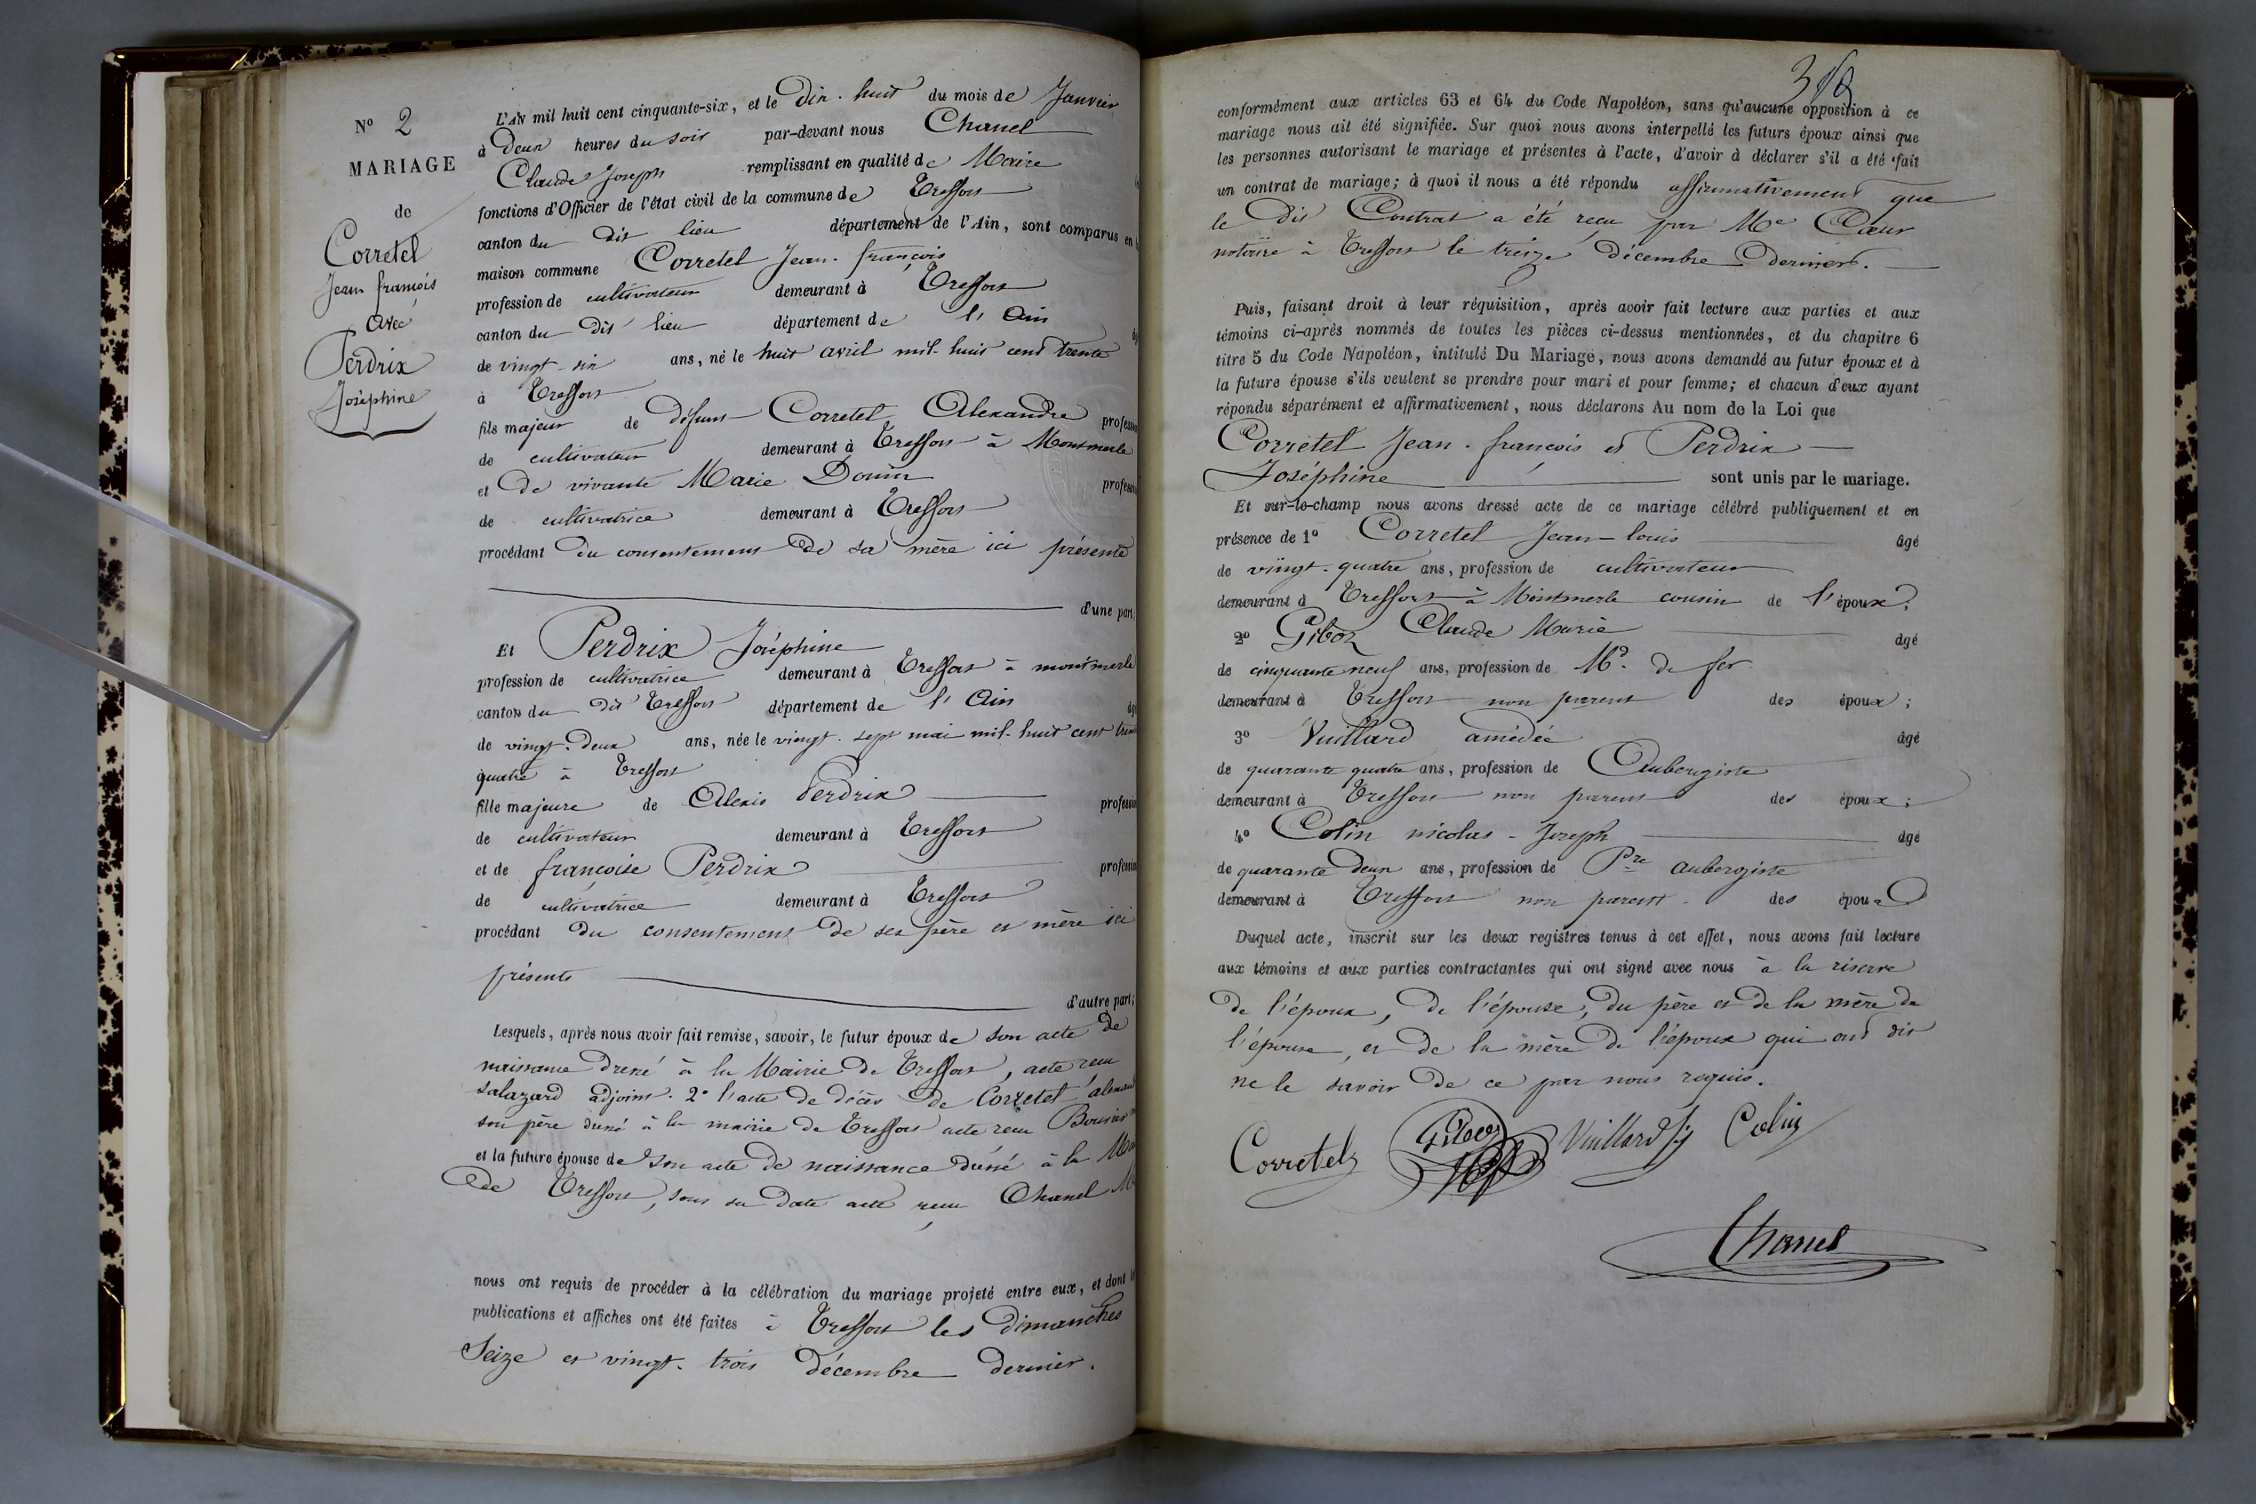 N° 2
MARIAGE
de
Corretel
Jean françois
avec
Perdrix
Joséphine
L'AN mil huit cent cinquante-six, et le dix-huit du mois de Janvier
à Deux heures du soir par-devant nous Chanel
Claude Joseph remplissant en qualité de Maire
fonctions d'Officier de l'état civil de la commune de Treffort
canton du dit lieu département de l'Ain, sont comparus en
maison commune Corretel Jean-françois
profession de cultivateur demeurant à Treffort
canton du dit lieu département de l'Ain
de vingt-six ans, né le huit avril mil-huit cent trente
à Treffort
fils majeur de défunt Corretel Alexandre profession
de cultivateur demeurant à Treffort à Montmerle
et de vivante Marie Douin profession
de cultivatrice demeurant à Treffort
procédant du consentement de sa mère ici présente
d'une part;
Et Perdrix Joséphine
profession de cultivatrice demeurant à Treffort à montmerle
canton du dit Treffort département de l'Ain
de vingt-deux ans, née le vingt-sept mai mil-huit cent trente
quatre à Treffort
fille majeure de Alexis Perdrix profession
de cultivateur demeurant à Treffort
et de françoise Perdrix profession
de cultivatrice demeurant à Treffort
procédant du consentement de ses père et mère ici
présents
d'autre part;
Lesquels, après nous avoir fait remise, savoir, le futur époux de son acte de
naissance dressé à la Mairie de Treffort, acte reçu
salazard adjoint. 2° l'acte de décès de Corretel
son père dressé à la mairie de Treffort acte reçu
et la future épouse de son acte de naissance dressé à la
de Treffort, sous sa date acte reçu Chanel
nous ont requis de procéder à la célébration du mariage projeté entre eux, et dont
publications et affiches ont été faites à Treffort les dimanches
Seize et vingt-trois décembre dernier.
conformément aux articles 63 et 64 du Code Napoléon, sans qu'aucune opposition à ce
mariage nous ait été signifiée. Sur quoi nous avons interpellé les futurs époux ainsi que
les personnes autorisant le mariage et présentes à l'acte, d'avoir à déclarer s'il a été fait
un contrat de mariage; à quoi il nous a été répondu affirmativement que
le dit Contrat a été reçu par Me Cœur
notaire à Treffort le treize décembre dernier.
Puis, faisant droit à leur réquisition, après avoir fait lecture aux parties et aux
témoins ci-après nommés de toutes les pièces ci-dessus mentionnées, et du chapitre 6
titre 5 du Code Napoléon, intitulé Du Mariage, nous avons demandé au futur époux et à
la future épouse s'ils veulent se prendre pour mari et pour femme; et chacun d'eux ayant
répondu séparément et affirmativement, nous déclarons Au nom de la Loi que
Corretel Jean-françois et Perdrix
Joséphine sont unis par le mariage.
Et sur-le-champ nous avons dressé acte de ce mariage célébré publiquement et en
présence de 1° Corretel Jean-louis âgé
de vingt-quatre ans, profession de cultivateur
demeurant à Treffort à Montmerle cousin de l'époux;
2° Giboz Claude Marie âgé
de cinquante neuf ans, profession de Md. de fer
demeurant à Treffort non parent des époux;
3° Vuillard amédée âgé
de quarante quatre ans, profession de Aubergiste
demeurant à Treffort non parent des époux;
4° Colin nicolas-Joseph âgé
de quarante deux ans, profession de Pre aubergiste
demeurant à Treffort non parent des époux
Duquel acte, inscrit sur les deux registres tenus à cet effet, nous avons fait lecture
aux témoins et aux parties contractantes qui ont signé avec nous à la réserve
de l'époux, de l'épouse, du père et de la mère de
l'épouse, et de la mère de l'époux qui ont dit
ne le savoir de ce par nous requis.
Corretel Giboz Vuillard Colin
Chanel